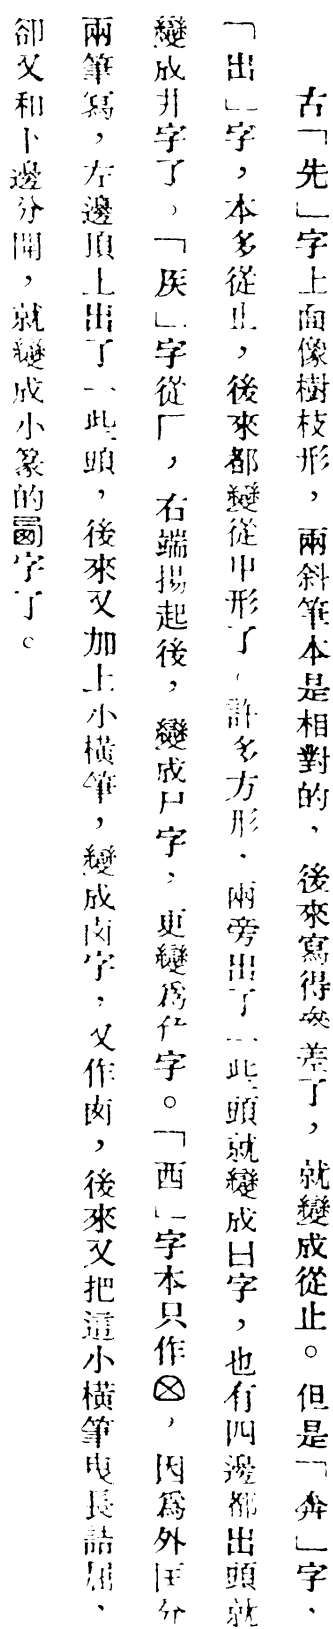 古「先」字上面像樹枝形，兩斜筆本是相對的，後來寫得參差了，就變成從止。但是「奔」字，
「出」字，本多從止，後來都變從屮形了，許多方形，兩旁出了一些頭就變成曰字，也有四邊都出頭就
變成井字了，「矦」字從厂，右端揚起後，變成尸字，更變爲字。「西」字本只作，因爲外匡分
兩筆寫，左邊頂上出了一些頭，後來又加上小橫筆，變成卤字，又作卥，後來又把這小橫筆曳長詰屈，
卻又和卜邊分開，就變成小篆的字了。